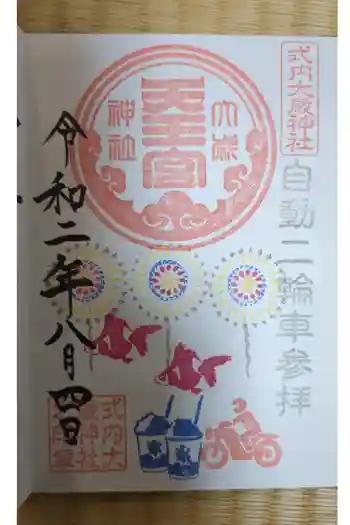 式内大歳神社
自動二輪車参拝
大歳
天王宮
神社
令和二年八月四日
式内大
歳神社
氷